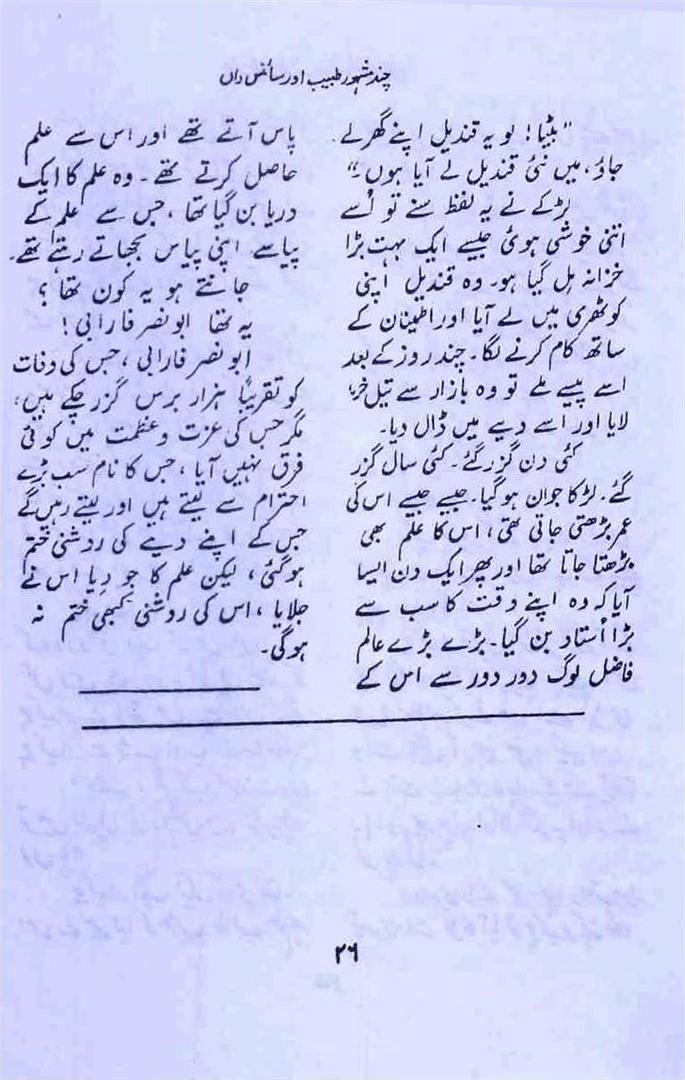 چند مشہور طبیب اور سائنس داں
"بیٹا! لو یہ قندیل اپنے گھر لے
جاؤ، میں نئی قندیل لے آیا ہوں"
لڑکے نے یہ لفظ سنے تو اُسے
اتنی خوشی ہوئی جیسے ایک بہت بڑا
خزانہ مل گیا ہو۔ وہ قندیل اپنی
کوٹھری میں لے آیا اور اطمینان کے
ساتھ کام کرنے لگا۔ چند روز کے بعد
اسے پیسے ملے تو وہ بازار سے تیل خرید
لایا اور اسے دیے میں ڈال دیا۔
کئی دن گزر گئے۔ کئی سال گزر
گئے۔ لڑکا جوان ہو گیا۔ جیسے جیسے اس کی
عمر بڑھتی جاتی تھی، اس کا علم بھی
بڑھتا جاتا تھا اور پھر ایک دن ایسا
آیا کہ وہ اپنے وقت کا سب سے
بڑا اُستاد بن گیا۔ بڑے بڑے عالم
فاضل لوگ دور دور سے اس کے
پاس آتے تھے اور اس سے علم
حاصل کرتے تھے۔ وہ علم کا ایک
دریا بن گیا تھا، جس سے علم کے
پیاسے اپنی پیاس بجھاتے رہتے تھے۔
جانتے ہو یہ کون تھا؟
یہ تھا ابو نصر فارابی!
ابو نصر فارابی، جس کی وفات
کو تقریباً ہزار برس گزر چکے ہیں،
مگر جس کی عزت و عظمت میں کوئی
فرق نہیں آیا، جس کا نام سب بڑے
احترام سے لیتے ہیں اور لیتے رہیں گے
جس کے اپنے دیے کی روشنی ختم
ہو گئی، لیکن علم کا جو دِیا اس نے
جلایا، اس کی روشنی کبھی ختم نہ
ہو گی۔
۲۶